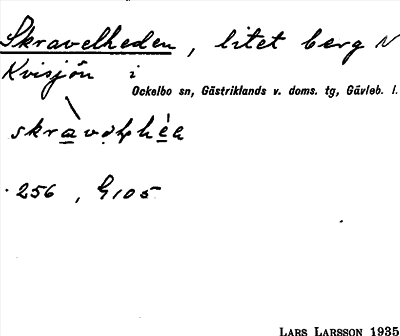 Skravelheden, litet berg N
Kvisjön i
Ockelbo sn, Gästriklands v. doms. tg, Gävleb. l.
256, G105
LARS LARSSON 1935